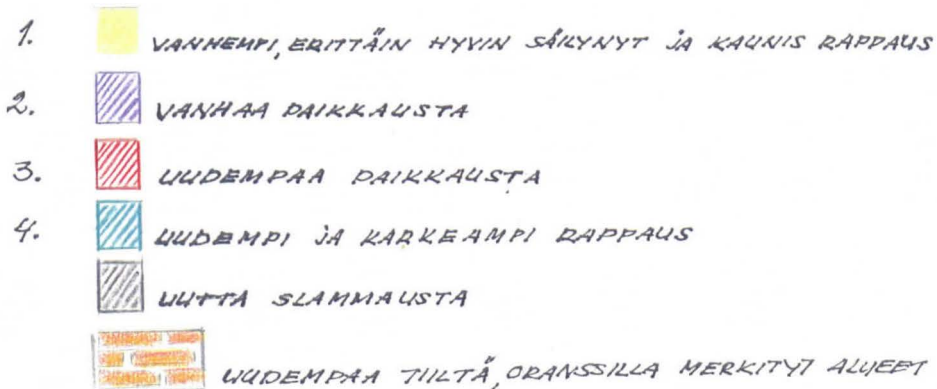 1. VANHEMPI, ERITTÄIN HYVIN SÄILYNYT JA KAUNIS RAPPAUS
2. VANHAA PAIKKAUSTA
3. UUDEMPAA PAIKKAUSTA
4. UUDEMPI JA KARKEAMPI RAPPAUS
UUTTA SLAMMAUSTA
UUDEMPAA TIILTÄ, ORANSSILLA MERKITYT ALUEET